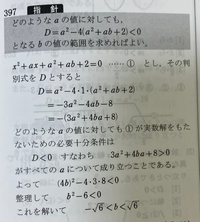 397 指針
どのような a の値に対しても,
D=a²-4(a²+ab+2)<0
となる b の値の範囲を求めればよい。
x²+ax+a²+ab+2=0 …… ① とし,その判
別式を D とすると
D=a²-4・1・(a²+ab+2)
=-3a²-4ab-8
=-(3a²+4ba+8)
どのような a の値に対しても ① が実数解をもた
ないための必要十分条件は
D<0 すなわち 3a²+4ba+8>0
がすべての a について成り立つことである。
よって (4b)²-4・3・8<0
整理して b²-6<0
これを解いて -√6<b<√6